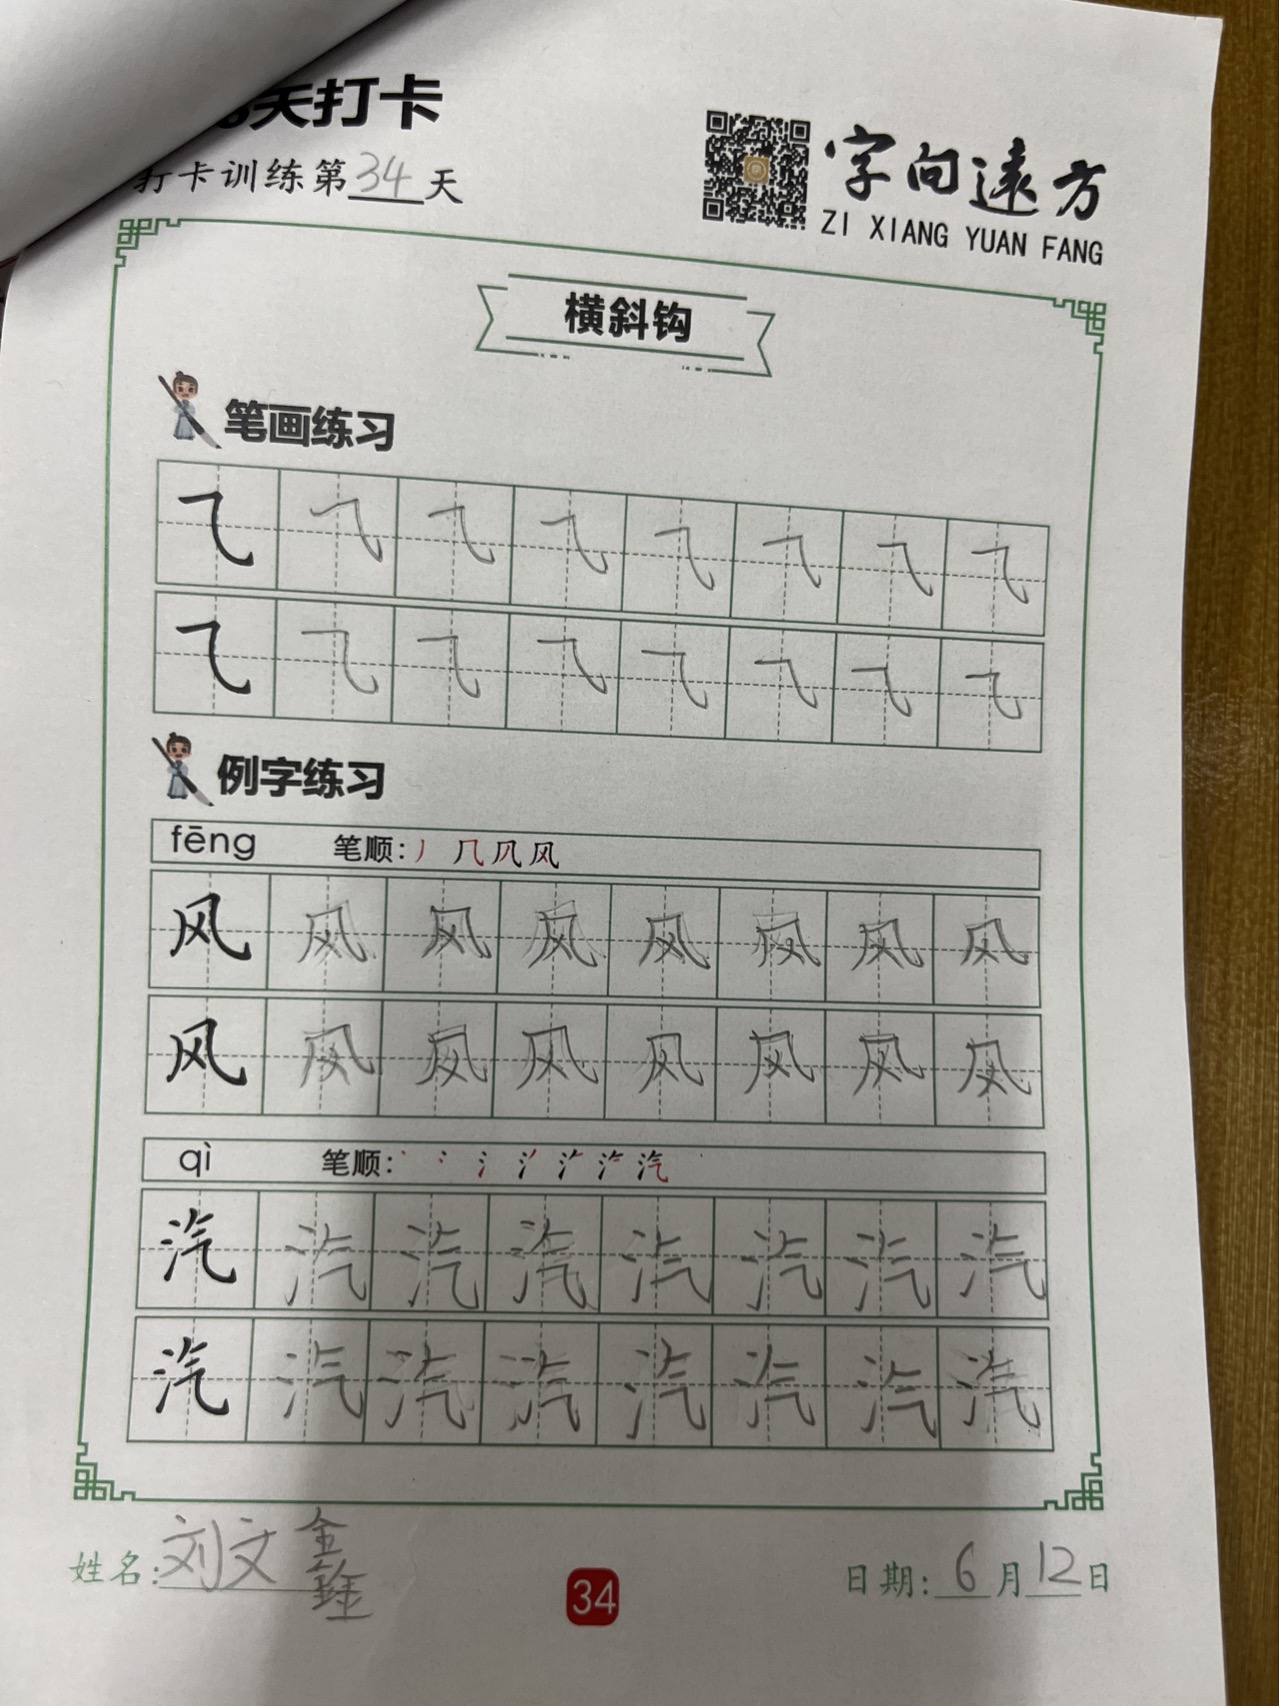 天打卡
打卡训练第34天
字向遠方
ZI XIANG YUAN FANG
横斜钩
笔画练习
乁 乁 乁 乁 乁 乁 乁 乁
乁 乁 乁 乁 乁 乁 乁 乁
例字练习
fēng 笔顺: 丿 几 风 风
风 风 风 风 风 风 风 风
风 风 风 风 风 风 风 风
qì 笔顺: 丶 冫 氵 汽
汽 汽 汽 汽 汽 汽 汽 汽
汽 汽 汽 汽 汽 汽 汽 汽
姓名: 刘文鑫
34
日期: 6月12日